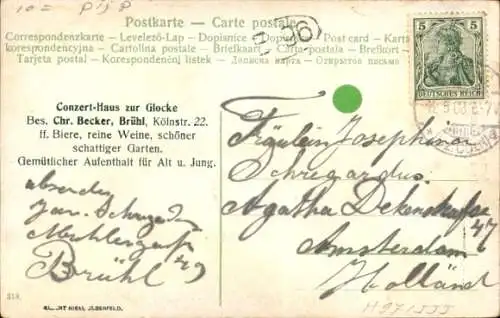 10 = pijp
Postkarte — Carte postale
Correspondenzkarte — Levelező-Lap — Dopisnice — Dopis — Post card — Karta
korespondencyjna — Cartolina postale — Briefkaart — Carta postale — Brefkort —
Tarjeta postal — Korespondenčni listek — Дописна карта — Открытое письмо
5 5
DEUTSCHES REICH
Conzert-Haus zur Glocke
Bes. Chr. Becker, Brühl, Kölnstr. 22.
ff. Biere, reine Weine, schöner
schattiger Garten.
Gemütlicher Aufenthalt für Alt u. Jung.
Fräulein Josephina
Schregardus
Agatha Dekenstraße
47
Amsterdam
Holland
absender
Jan Schregardus
49
Brühl
318.
H971555